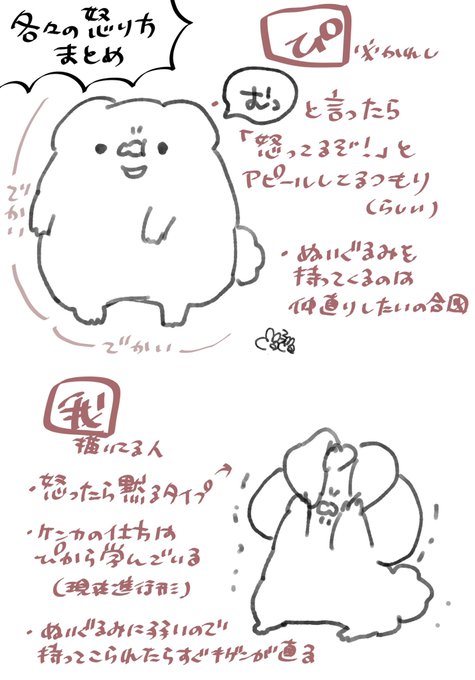 各々の怒り方
まとめ
ぴ
※かれし
むっ
・と言ったら
「怒ってるぞ!」と
アピールしてるつもり
(らしい)
・ぬいぐるみを
持ってくるのは
仲直りしたいの合図
でかい
でかい
我
描いてる人
・怒ったら黙るタイプ
・ケンカの仕方は
ぴから学んでいる
(現在進行形)
・ぬいぐるみに弱いので
持ってこられたらすぐキゲンが直る